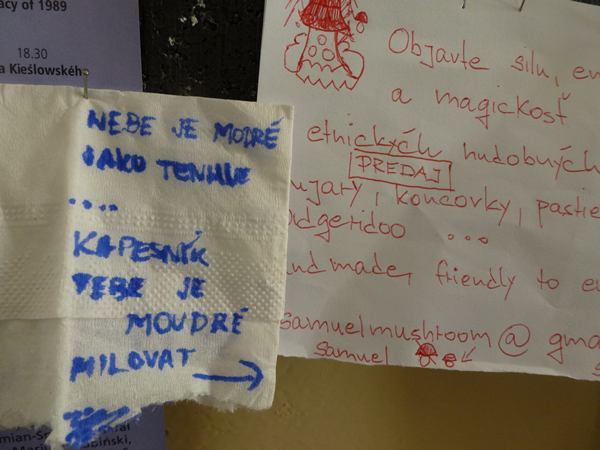 acy of 1989
18.30
a Kieślowskéh
NEBE JE MODRÉ
JAKO TENHLE
....
KAPESNÍK
TEBE JE
MOUDRÉ
MILOVAT
Objavte silu,
a magickosť
etnických hudobných
PREDAJ
koncovky,
dgeridoo ...
nd made, friendly to
samuelmushroom@gma
samuel